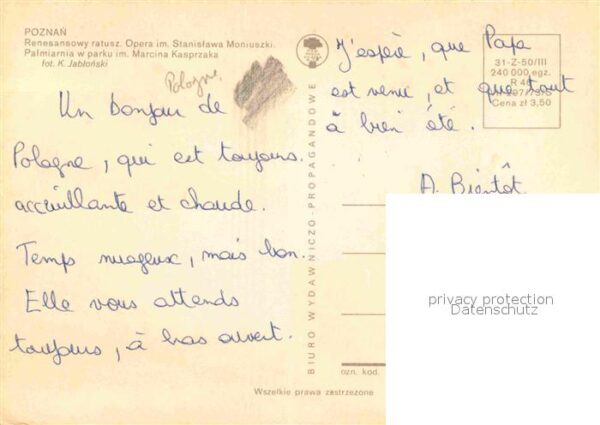 POZNAŃ
Renesansowy ratusz. Opera im. Stanisława Moniuszki.
Palmiarnia w parku im. Marcina Kasprzaka
fot. K. Jabłoński
Pologne.
Un bonjour de
Pologne, qui est toujours.
accuillante et chaude.
Temps nuageux, mais bon.
Elle vous attends
toujours, à bras ouvert.
BIURO WYDAWNICZO-PROPAGANDOWE
J'espère, que Papa
est venu, et que tout
à bien été.
A Bientôt
31-Z-50/III
240 000 egz.
Cena zł 3,50
ozn. kod.
Wszelkie prawa zastrzeżone
privacy protection
Datenschutz